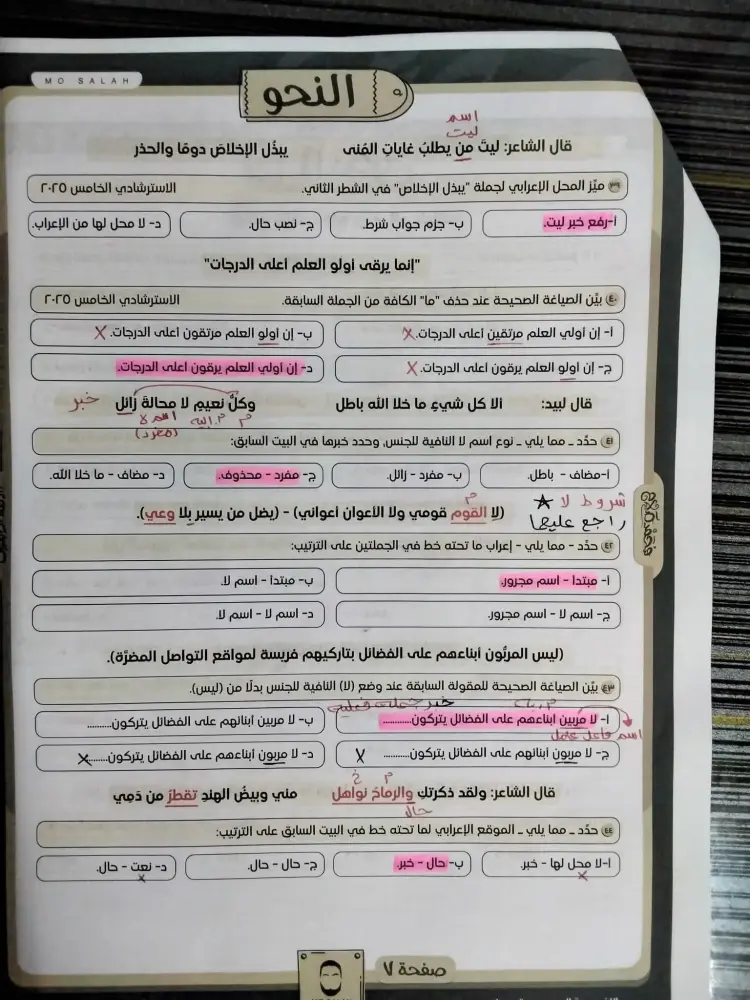 MO SALAH
النحو
اسم
ليت
قال الشاعر: ليتَ من يطلبُ غاياتِ المُنى يبذُل الإخلاصَ دومًا والحذر
٣٩ ميّز المحل الإعرابي لجملة "يبذل الإخلاص" في الشطر الثاني. الاسترشادي الخامس ٢٠٢٥
أ-رفع خبر ليت. ب- جزم جواب شرط. ج- نصب حال. د- لا محل لها من الإعراب.
"إنما يرقى أولو العلم أعلى الدرجات"
٤٠ بيّن الصياغة الصحيحة عند حذف "ما" الكافة من الجملة السابقة. الاسترشادي الخامس ٢٠٢٥
أ- إن أولي العلم مرتقين أعلى الدرجات. ب- إن أولو العلم مرتقون أعلى الدرجات.
ج- إن أولو العلم يرقون أعلى الدرجات. د- إن أولي العلم يرقون أعلى الدرجات.
قال لبيد: ألا كل شيءٍ ما خلا الله باطل وكلُّ نعيمٍ لا محالةَ زائل خبر
م م.إليه اسم لا
(مفرد)
٤١ حدّد ـ مما يلي ـ نوع اسم لا النافية للجنس، وحدد خبرها في البيت السابق:
أ-مضاف - باطل. ب- مفرد - زائل. ج- مفرد - محذوف. د- مضاف - ما خلا الله.
شروط لا ★
راجع عليها
م
(لا القوم قومي ولا الأعوان أعواني) - (يضل من يسير بلا وعي).
٤٢ حدّد - مما يلي - إعراب ما تحته خط في الجملتين على الترتيب:
أ- مبتدا - اسم مجرور. ب- مبتدا - اسم لا.
ج- اسم لا - اسم مجرور. د- اسم لا - اسم لا.
(ليس المربُّون أبناءهم على الفضائل بتاركيهم فريسة لمواقع التواصل المضرَّة).
٤٣ بيّن الصياغة الصحيحة للمقولة السابقة عند وضع (لا) النافية للجنس بدلًا من (ليس).
خبر جملة فعلية
أ- لا مربين أبناءهم على الفضائل يتركون........... ب- لا مربين أبنائهم على الفضائل يتركون...........
اسم فاعل عامل
ج- لا مربون أبنائهم على الفضائل يتركون........... د- لا مربون أبناءهم على الفضائل يتركون...........
م خ
قال الشاعر: ولقد ذكرتكِ والرماحُ نواهل مني وبيضُ الهندِ تقطرُ من دَمِي
حال
٤٤ حدّد ـ مما يلي ـ الموقع الإعرابي لما تحته خط في البيت السابق على الترتيب:
أ-لا محل لها - خبر. ب- حال - خبر. ج- حال - حال. د- نعت - حال.
صفحة ٧